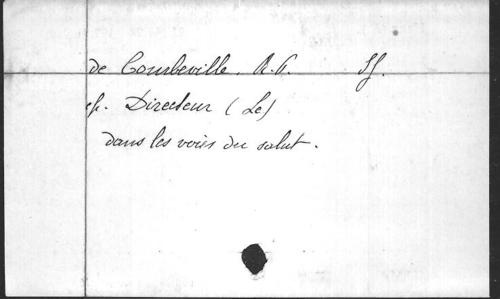 de Courbeville. R.P. SJ.
cf. Directeur (Le)
dans les voies du salut.